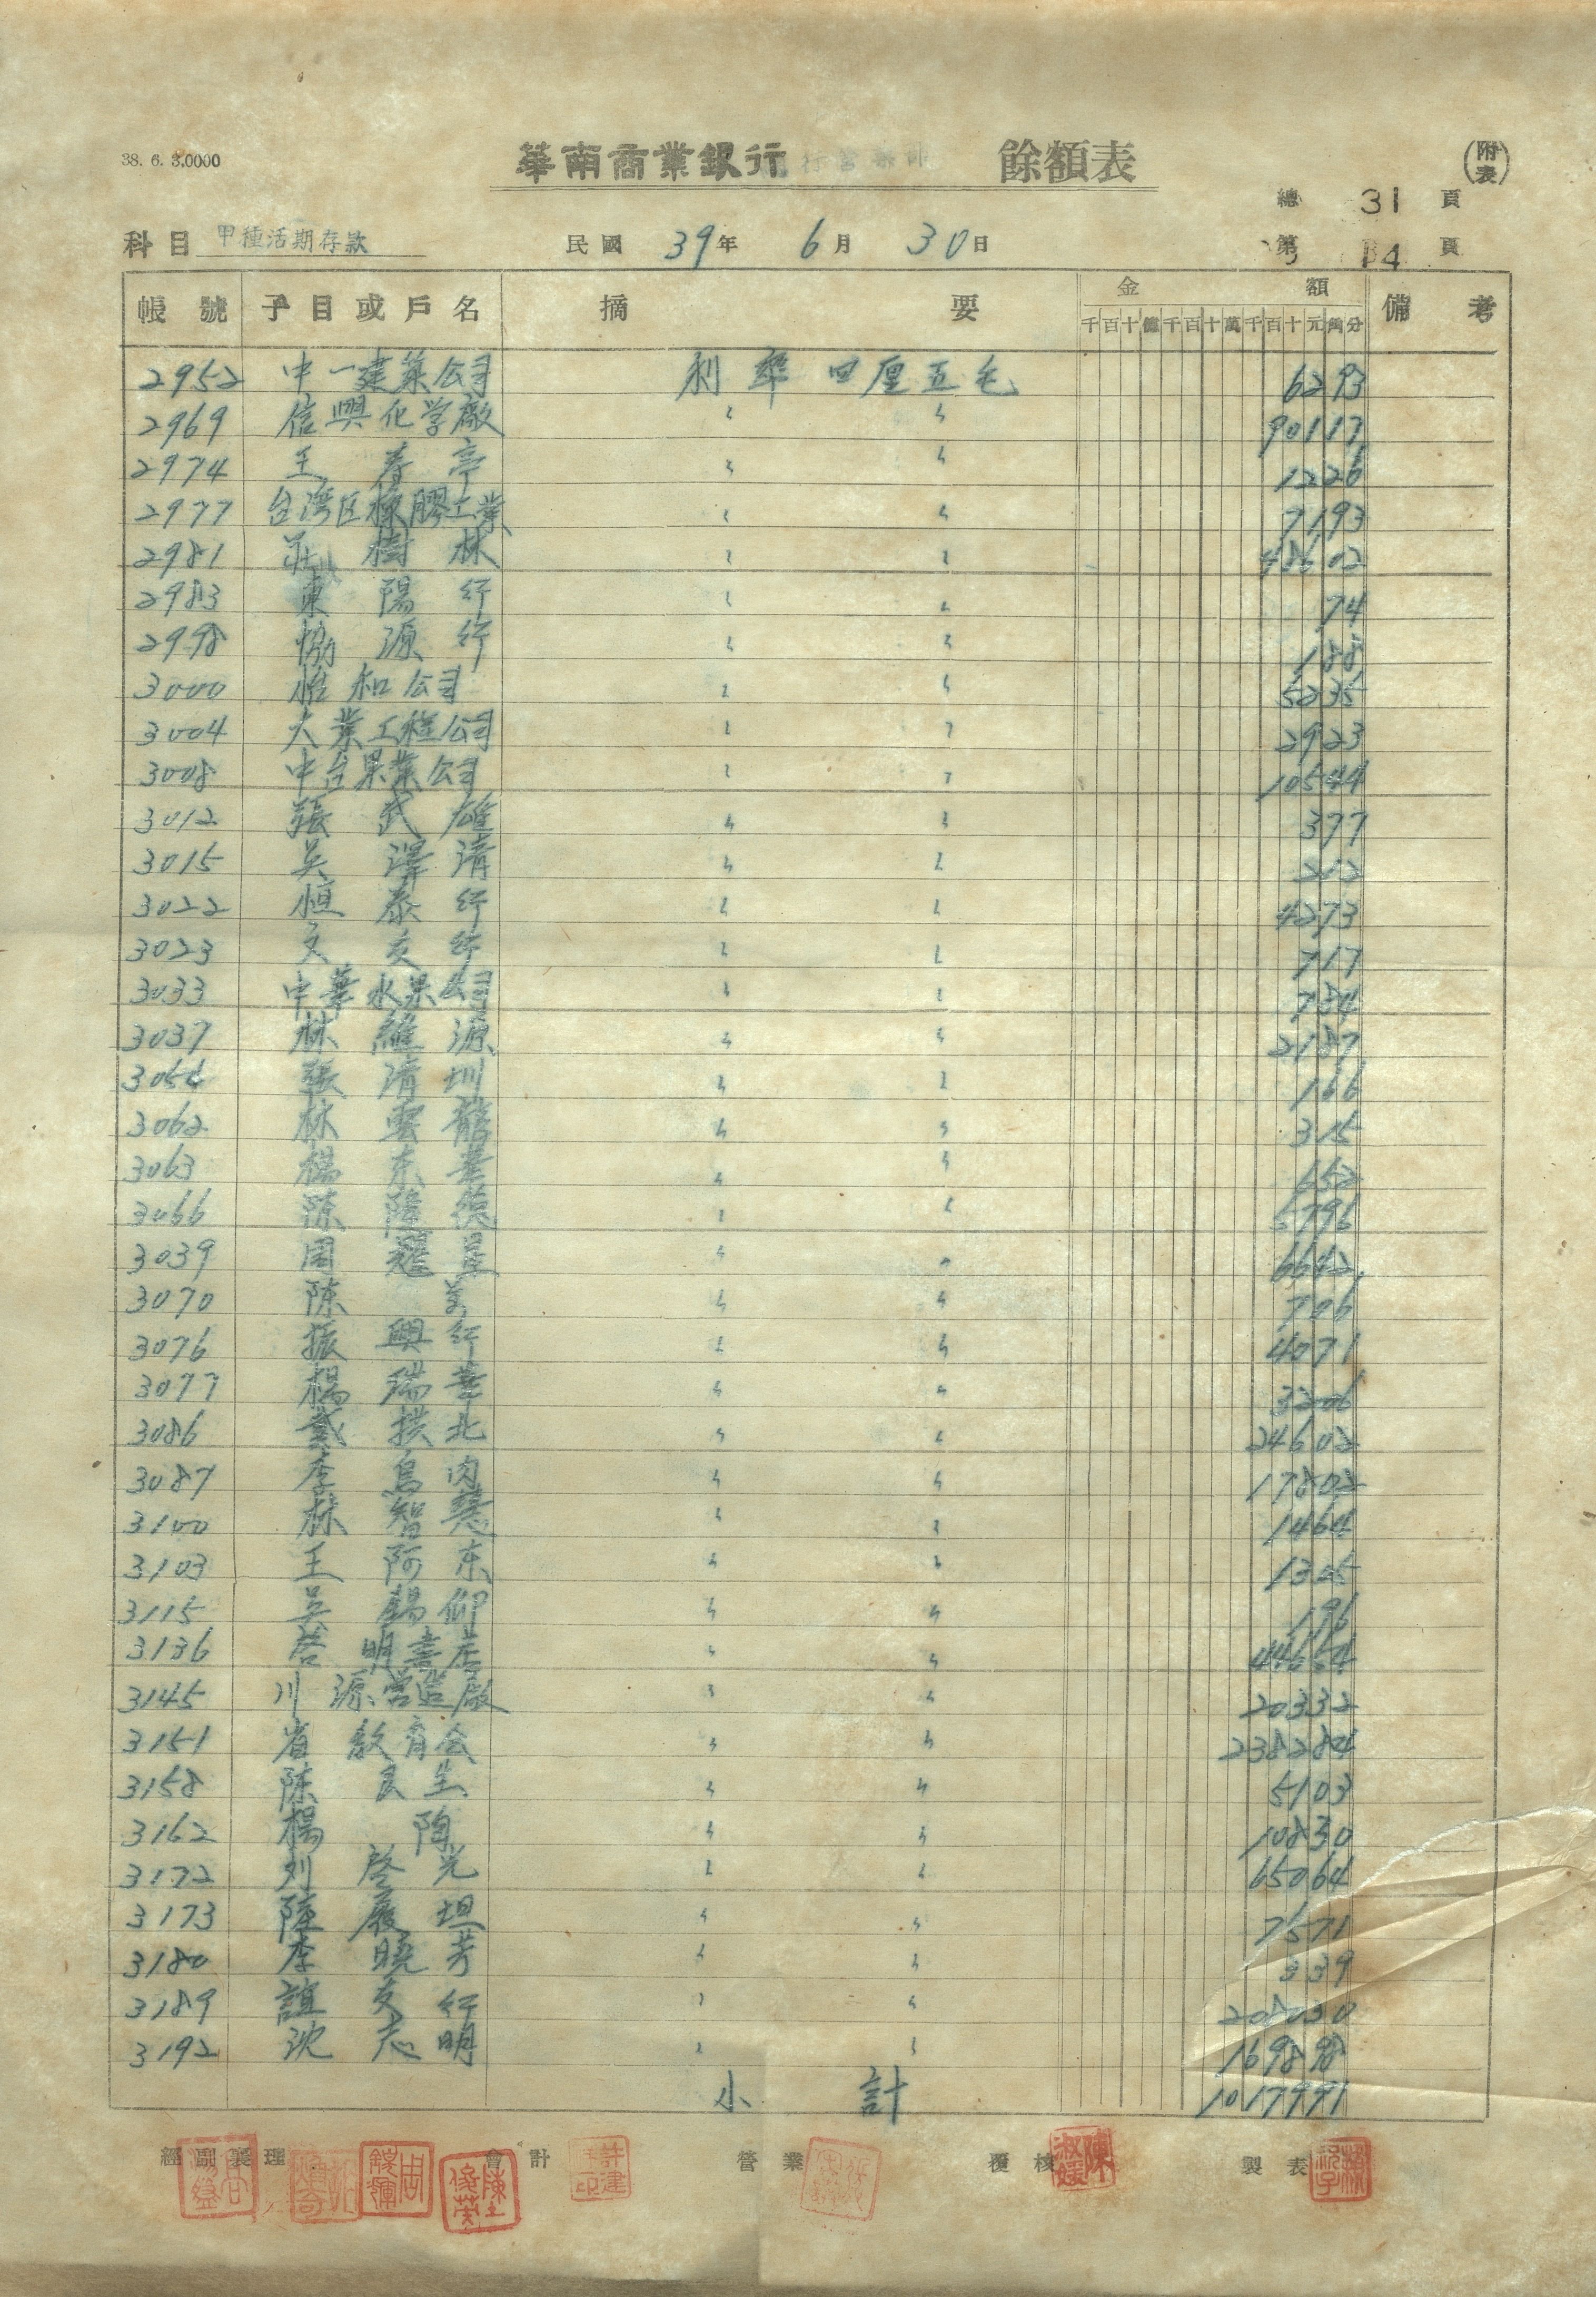 38. 6. 3.0000
華南商業銀行 餘額表 (附表)
總 31 頁
科目 甲種活期存款 民國 39年 6月 30日 第 14 頁
帳號 子目或戶名 摘要 金額 備考
千百十億千百十萬千百十元角分
2952 中一建築公司 利率四厘五毛 6293
2969 信興化学廠 〃 〃 90117
2974 王春亭 〃 〃 1226
2977 台湾区橡膠工業 〃 〃 7193
2981 莊樹林 〃 〃 48602
2983 東陽行 〃 〃 74
2998 協源行 〃 〃 188
3000 怡和公司 〃 〃 5235
3004 大業工程公司 〃 〃 2923
3008 中台果業公司 〃 〃 10544
3012 張武雄 〃 〃 377
3015 吳澤清 〃 〃 212
3022 恒泰行 〃 〃 4273
3023 文友行 〃 〃 717
3033 中華水果公司 〃 〃 784
3037 林維源 〃 〃 2187
3054 張清圳 〃 〃 166
3062 林雲龍 〃 〃 315
3063 楊东華 〃 〃 652
3066 陳隆德 〃 〃 5796
3039 周 〃 〃 6642
3070 陈 〃 〃 706
3076 振興行 〃 〃 4071
3077 楊瑞華 〃 〃 3206
3086 戴拱北 〃 〃 24602
3087 李烏肉 〃 〃 17802
3100 林智慧 〃 〃 1464
3103 王阿东 〃 〃 1325
3115 吳錫仰 〃 〃 196
3136 啓明書店 〃 〃 44654
3145 川源営造廠 〃 〃 20332
3151 省教育会 〃 〃 238284
3158 陈良生 〃 〃 5103
3162 楊陶 〃 〃 10830
3172 刘啓光 〃 〃 65064
3173 陸履坦 〃 〃 7571
3180 李曉芳 〃 〃 339
3189 誼友行 〃 〃 208030
3192 沈志明 〃 〃 169898
小計 1017991
經副襄理 會計 營業 覆核 製表
周錫彌 陳俊英 許建 陳淑媛